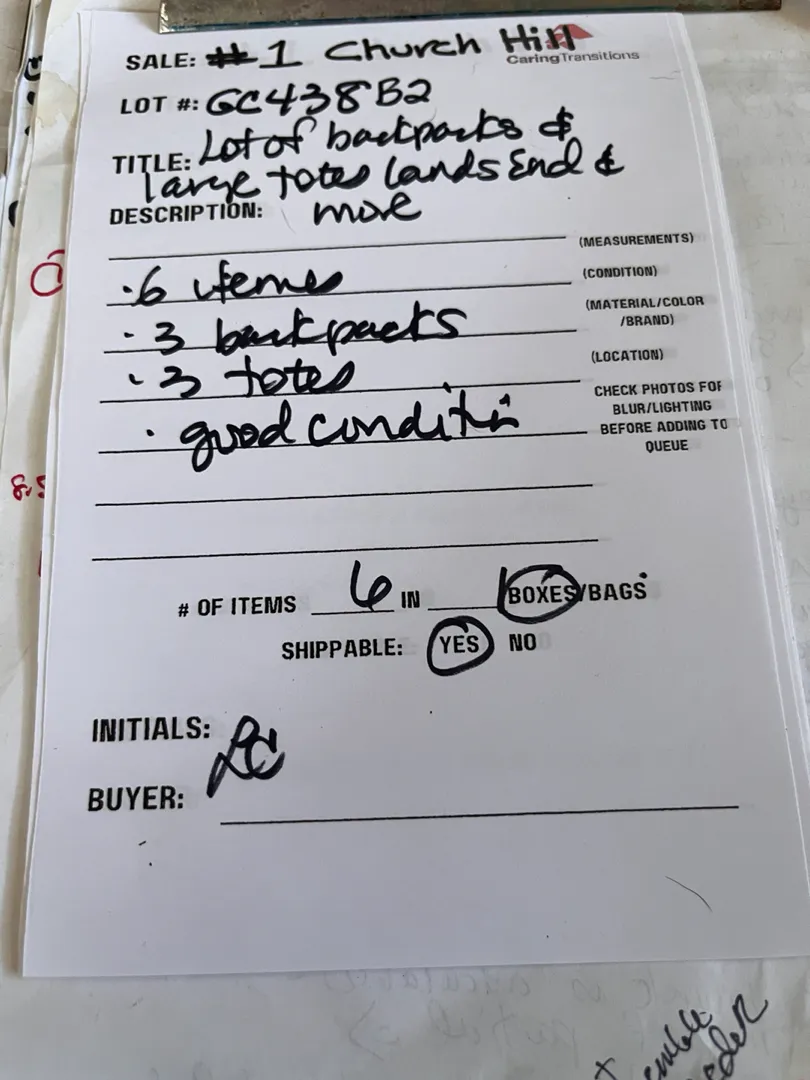 SALE: #1 Church Hill
CaringTransitions
LOT #: GC438B2
TITLE: Lot of backpacks &
large totes Lands End &
DESCRIPTION: more
(MEASUREMENTS)
· 6 items
(CONDITION)
· 3 backpacks
(MATERIAL/COLOR
/BRAND)
· 3 totes
(LOCATION)
· good condition
CHECK PHOTOS FOR
BLUR/LIGHTING
BEFORE ADDING TO
QUEUE
# OF ITEMS 6 IN 1 BOXES/BAGS
SHIPPABLE: YES NO
INITIALS: LC
BUYER:
8.5